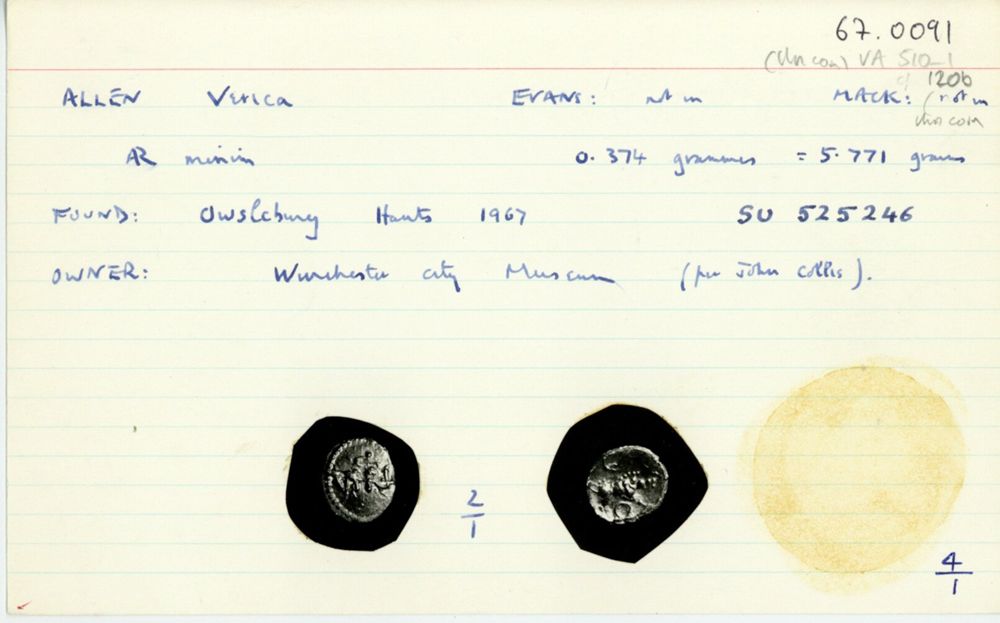 67.0091
(Unc coin) VA 510-1
cf 120b
ALLEN Verica EVANS: not in MACK: (not in
this coin
AR minim 0.374 grammes = 5.771 grains
FOUND: Owslebury Hants 1967 SU 525246
OWNER: Winchester City Museum (per John Collis).
2/1
4/1